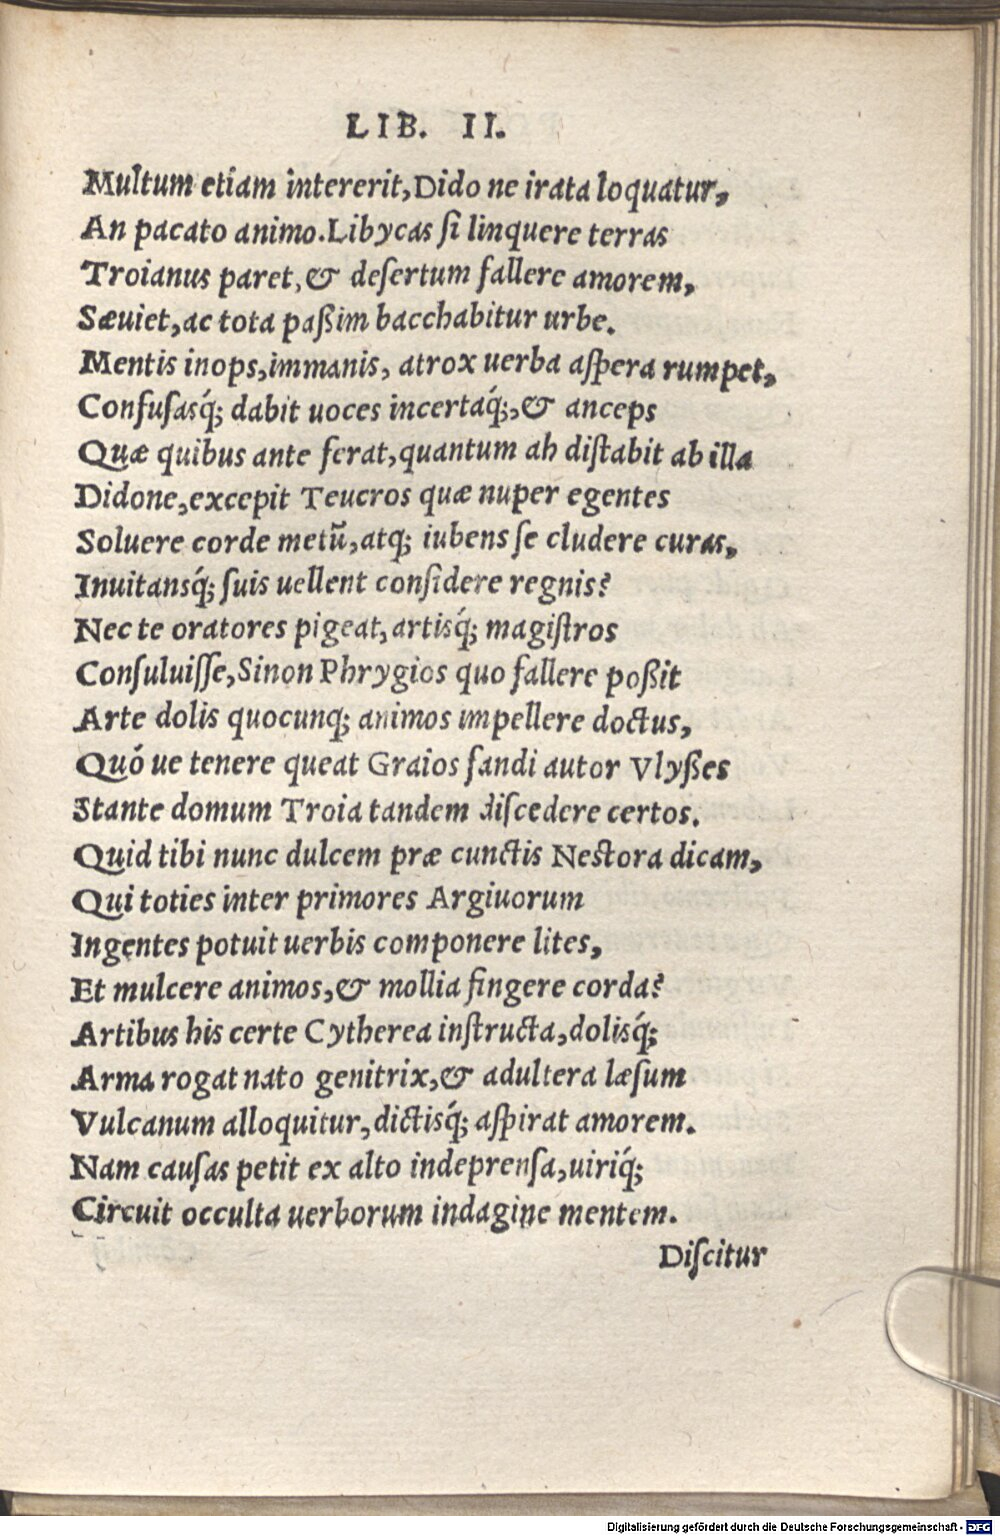 LIB. II.
Multum etiam intererit, Dido ne irata loquatur,
An pacato animo. Libycas ſi linquere terras
Troianus paret, & deſertum fallere amorem,
Sæuiet, ac tota paßim bacchabitur urbe.
Mentis inops, immanis, atrox uerba aſpera rumpet,
Confuſasq́; dabit uoces incertaq́;, & anceps
Quæ quibus ante ferat, quantum ah diſtabit ab illa
Didone, excepit Teucros quæ nuper egentes
Soluere corde metũ, atq; iubens ſe cludere curas,
Inuitansq́; ſuis uellent conſidere regnis?
Nec te oratores pigeat, artisq́; magiſtros
Conſuluiſſe, Sinon Phrygios quo fallere poßit
Arte dolis quocunq; animos impellere doctus,
Quó ue tenere queat Graios fandi autor Vlyßes
Stante domum Troia tandem diſcedere certos.
Quid tibi nunc dulcem præ cunctis Nestora dicam,
Qui toties inter primores Argiuorum
Ingentes potuit uerbis componere lites,
Et mulcere animos, & mollia fingere corda?
Artibus his certe Cytherea inſtructa, dolisq́;
Arma rogat nato genitrix, & adultera læsum
Vulcanum alloquitur, dictisq́; aſpirat amorem.
Nam cauſas petit ex alto indeprenſa, uiriq́;
Circuit occulta uerborum indagine mentem.
Diſcitur
Digitalisierung gefördert durch die Deutsche Forschungsgemeinschaft - DFG